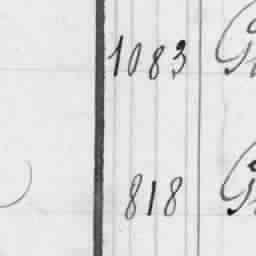 1083
818